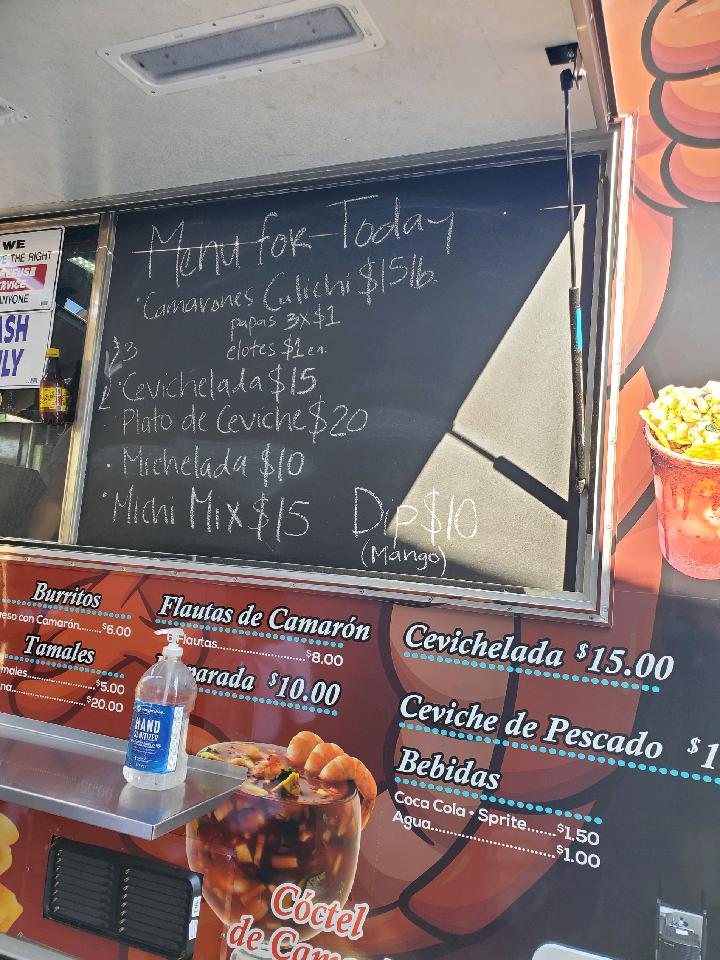 WE
THE RIGHT
REFUSE
SERVICE
ANYONE
ASH
LY
Menu for Today
·Camarones Culichi $15lb.
papas 3x$1
elotes $1 ea.
·Cevichelada $15
·Plato de Ceviche $20
·Michelada $10
·Michi Mix $15
Dip $10
(Mango)
Burritos
eso con Camarón.......$6.00
Tamales
males...............$5.00
na...............$20.00
HAND
SANITIZER
Flautas de Camarón
Flautas...............$8.00
parada $10.00
Cevichelada $15.00
Ceviche de Pescado $1
Bebidas
Coca Cola • Sprite......$1.50
Agua.........................$1.00
Cóctel
de Cam